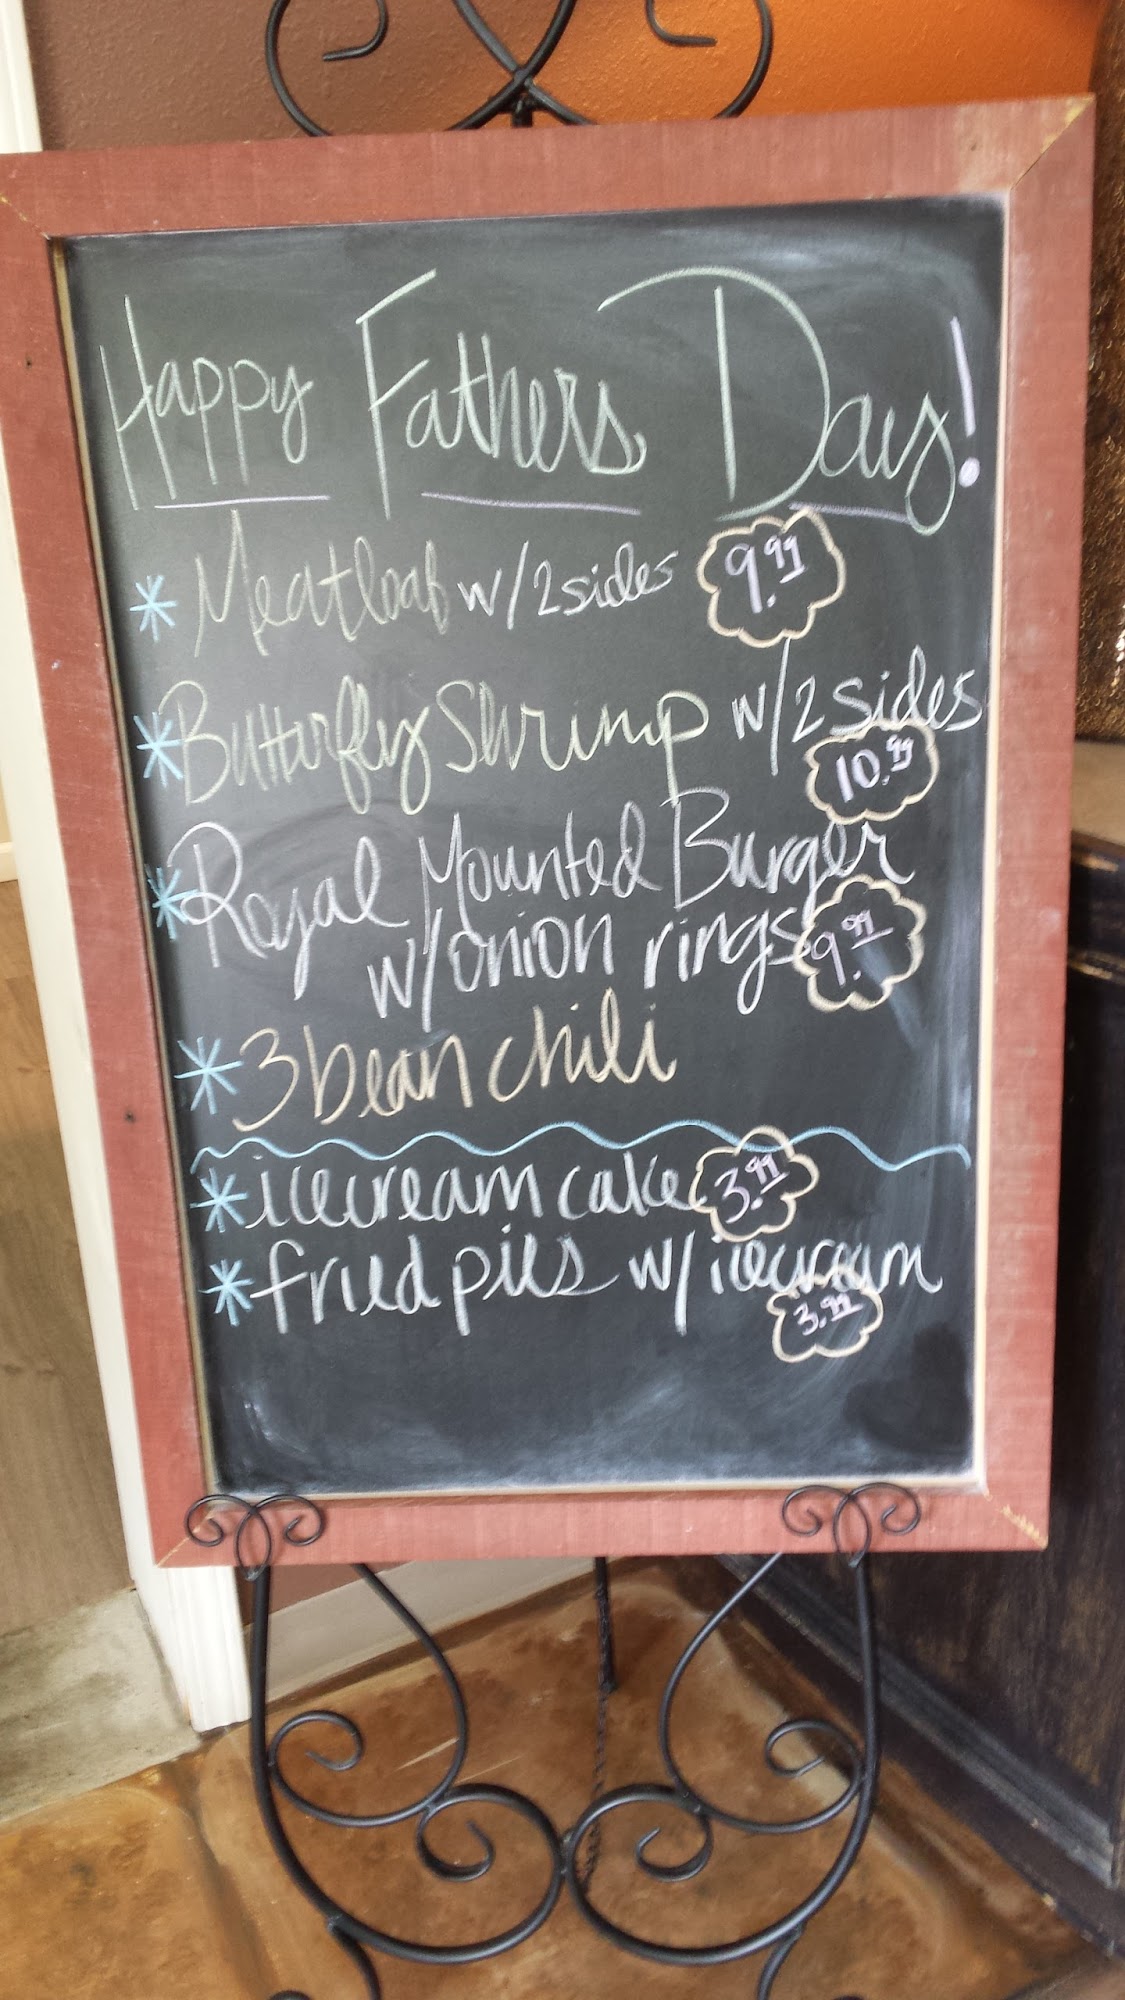 Happy Fathers Day!
* Meatloaf w/2sides 9.99
* Butterfly Shrimp w/2sides
10.99
* Royal Mounted Burger
w/onion rings 9.99
* 3 bean chili
* icecream cake 3.99
* fried pies w/icecream
3.99